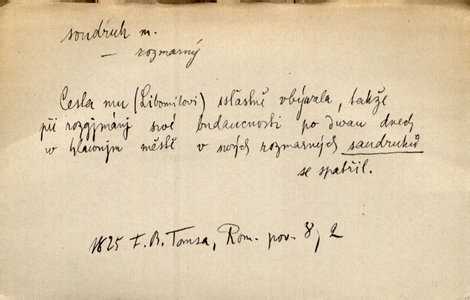 soudruh m.
— rozmarný
Cesta mu (Libomilovi) šťastně ubýwala, takže
při rozgjmánj swé budaucnosti po dwau dnech
w hlawnjm městě v swých rozmarných saudruhů
se spatřil.
1825 F. B. Tomsa, Rom. pov. 8, 2